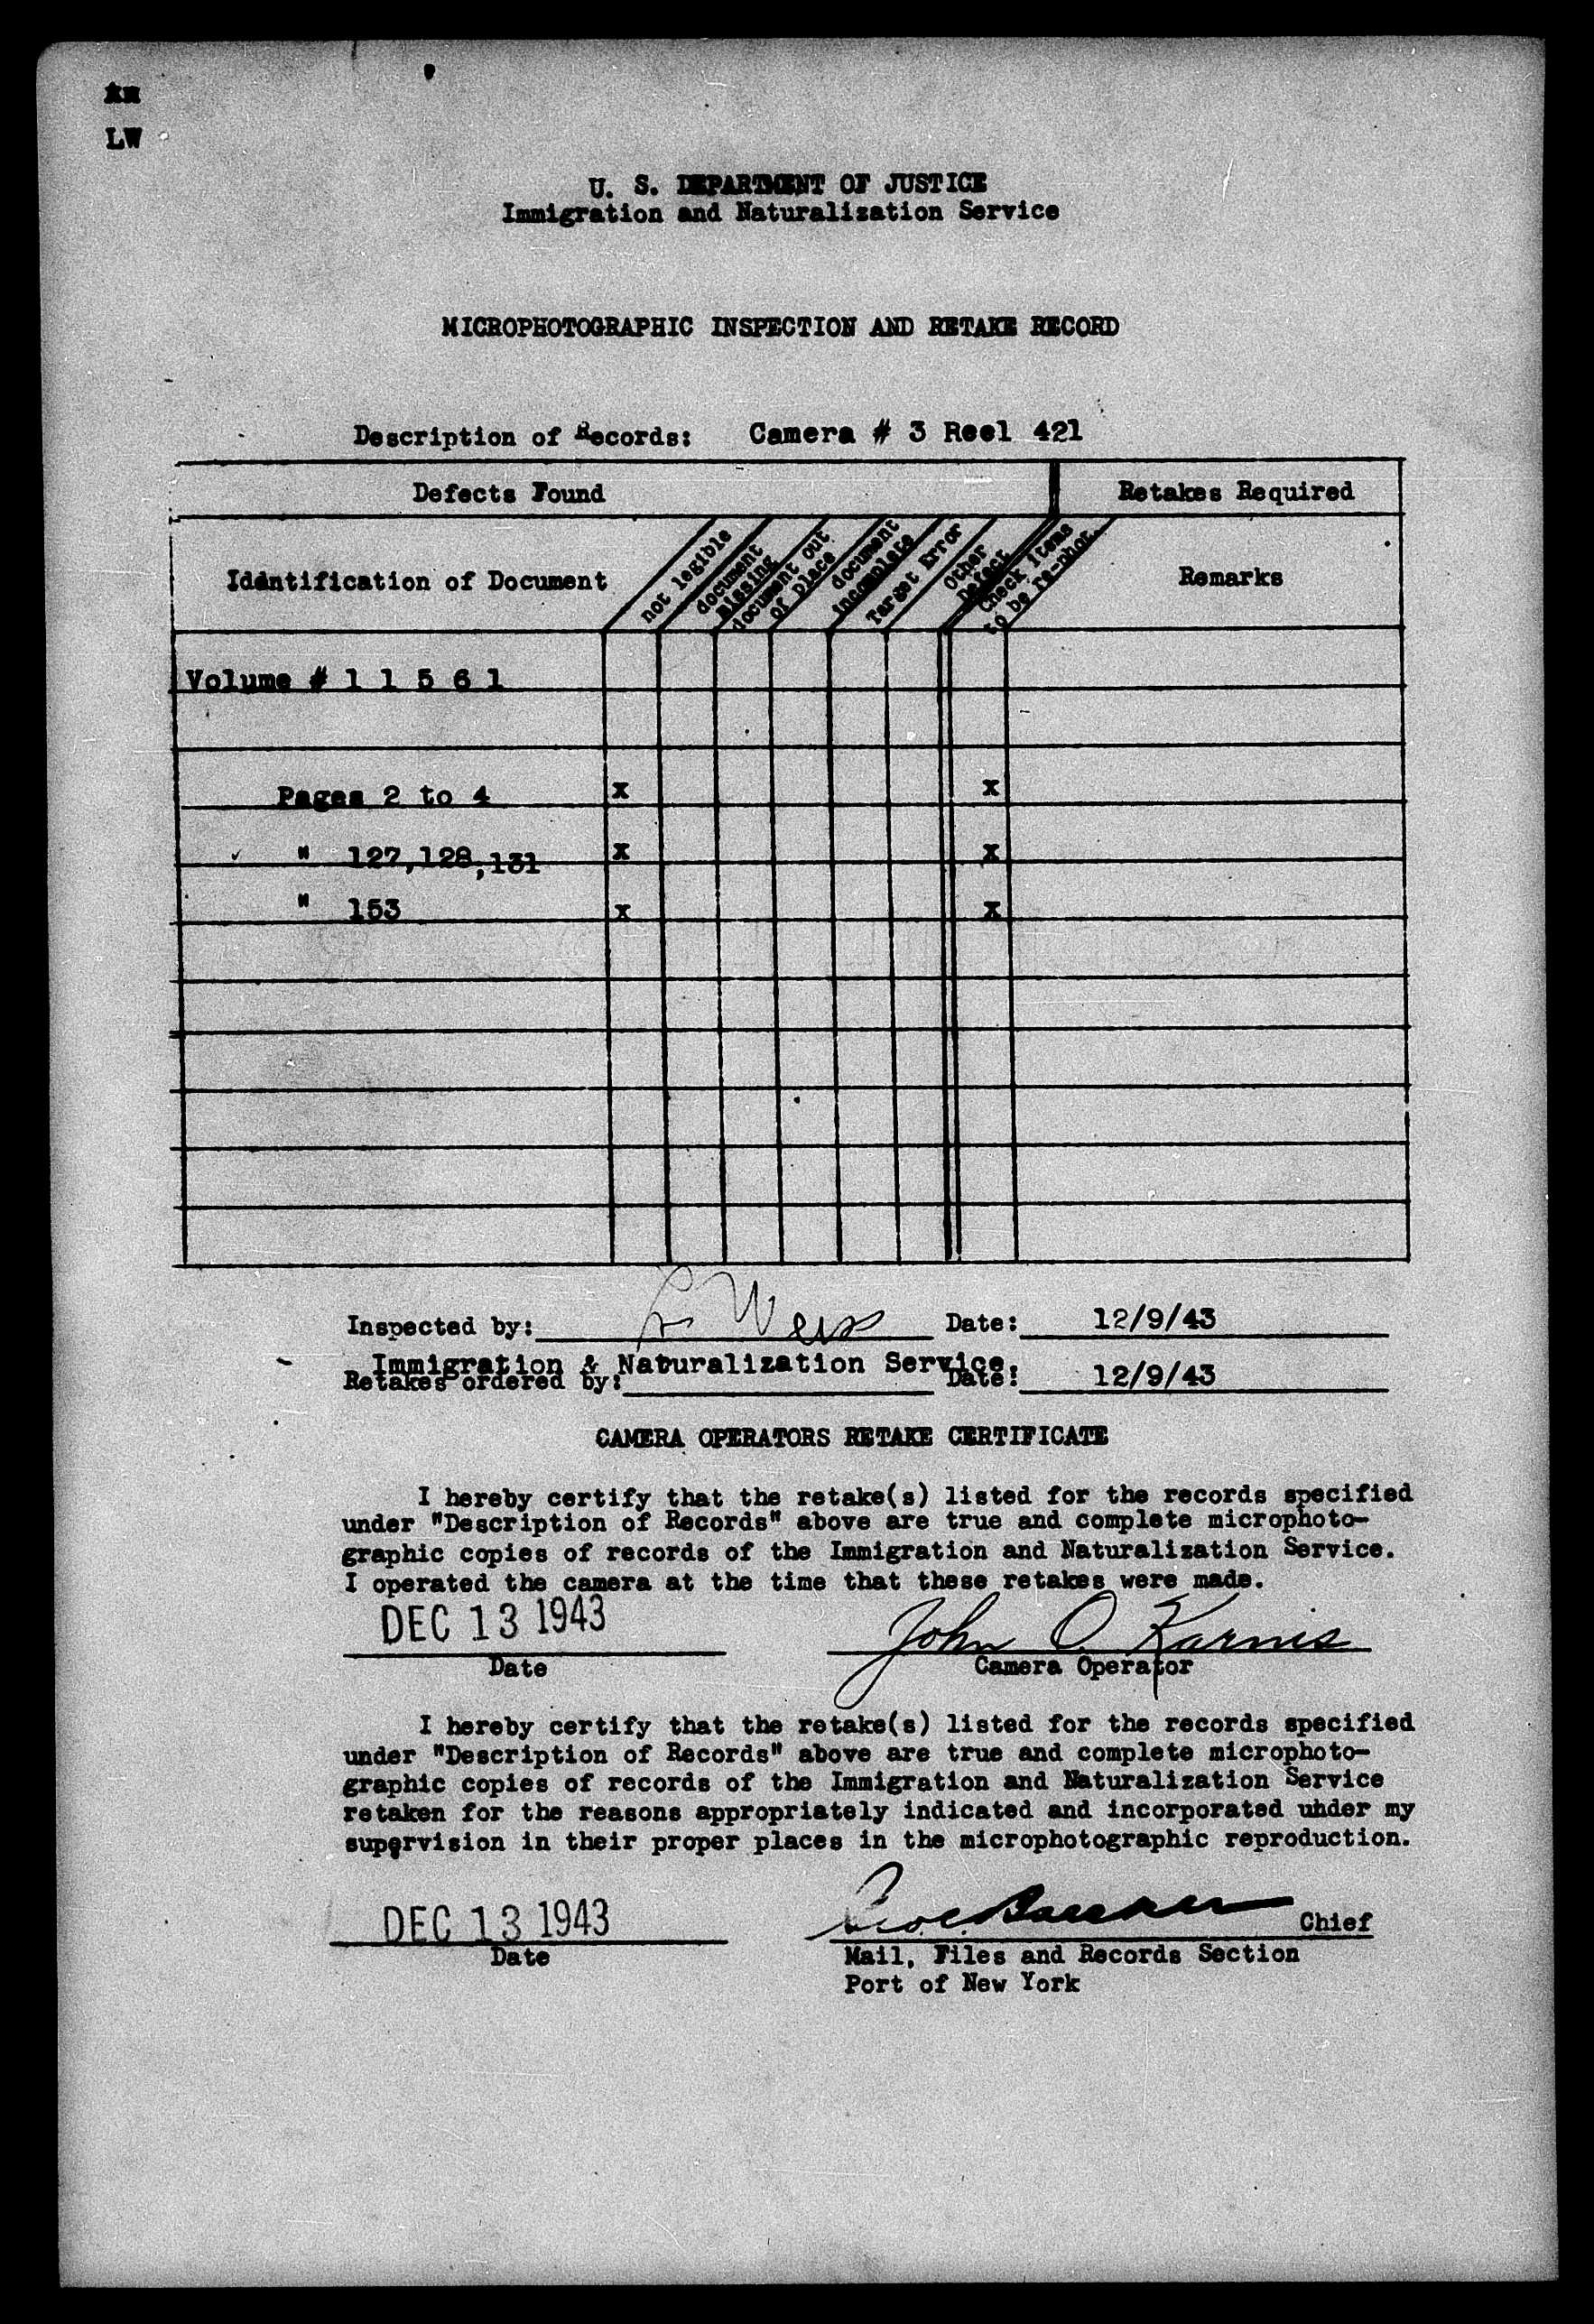 LW
U. S. DEPARTMENT OF JUSTICE
Immigration and Naturalization Service
MICROPHOTOGRAPHIC INSPECTION AND RETAKE RECORD
Description of Records: Camera # 3 Reel 421
Defects Found Retakes Required
Identification of Document
not legible
document missing
document out of place
document incomplete
Target Error
Other Defect
Check Items to be re-phot.
Remarks
Volume # 1 1 5 6 1
Pages 2 to 4 x x
" 127,128,131 x x
" 153 x x
Inspected by: L. Weiss Date: 12/9/43
Immigration & Naturalization Service.
Retakes ordered by: Date: 12/9/43
CAMERA OPERATORS RETAKE CERTIFICATE
I hereby certify that the retake(s) listed for the records specified
under "Description of Records" above are true and complete microphoto-
graphic copies of records of the Immigration and Naturalization Service.
I operated the camera at the time that these retakes were made.
DEC 13 1943 John O. Karnis
Date Camera Operator
I hereby certify that the retake(s) listed for the records specified
under "Description of Records" above are true and complete microphoto-
graphic copies of records of the Immigration and Naturalization Service
retaken for the reasons appropriately indicated and incorporated uhder my
supervision in their proper places in the microphotographic reproduction.
DEC 13 1943 Chief
Date Mail, Files and Records Section
Port of New York